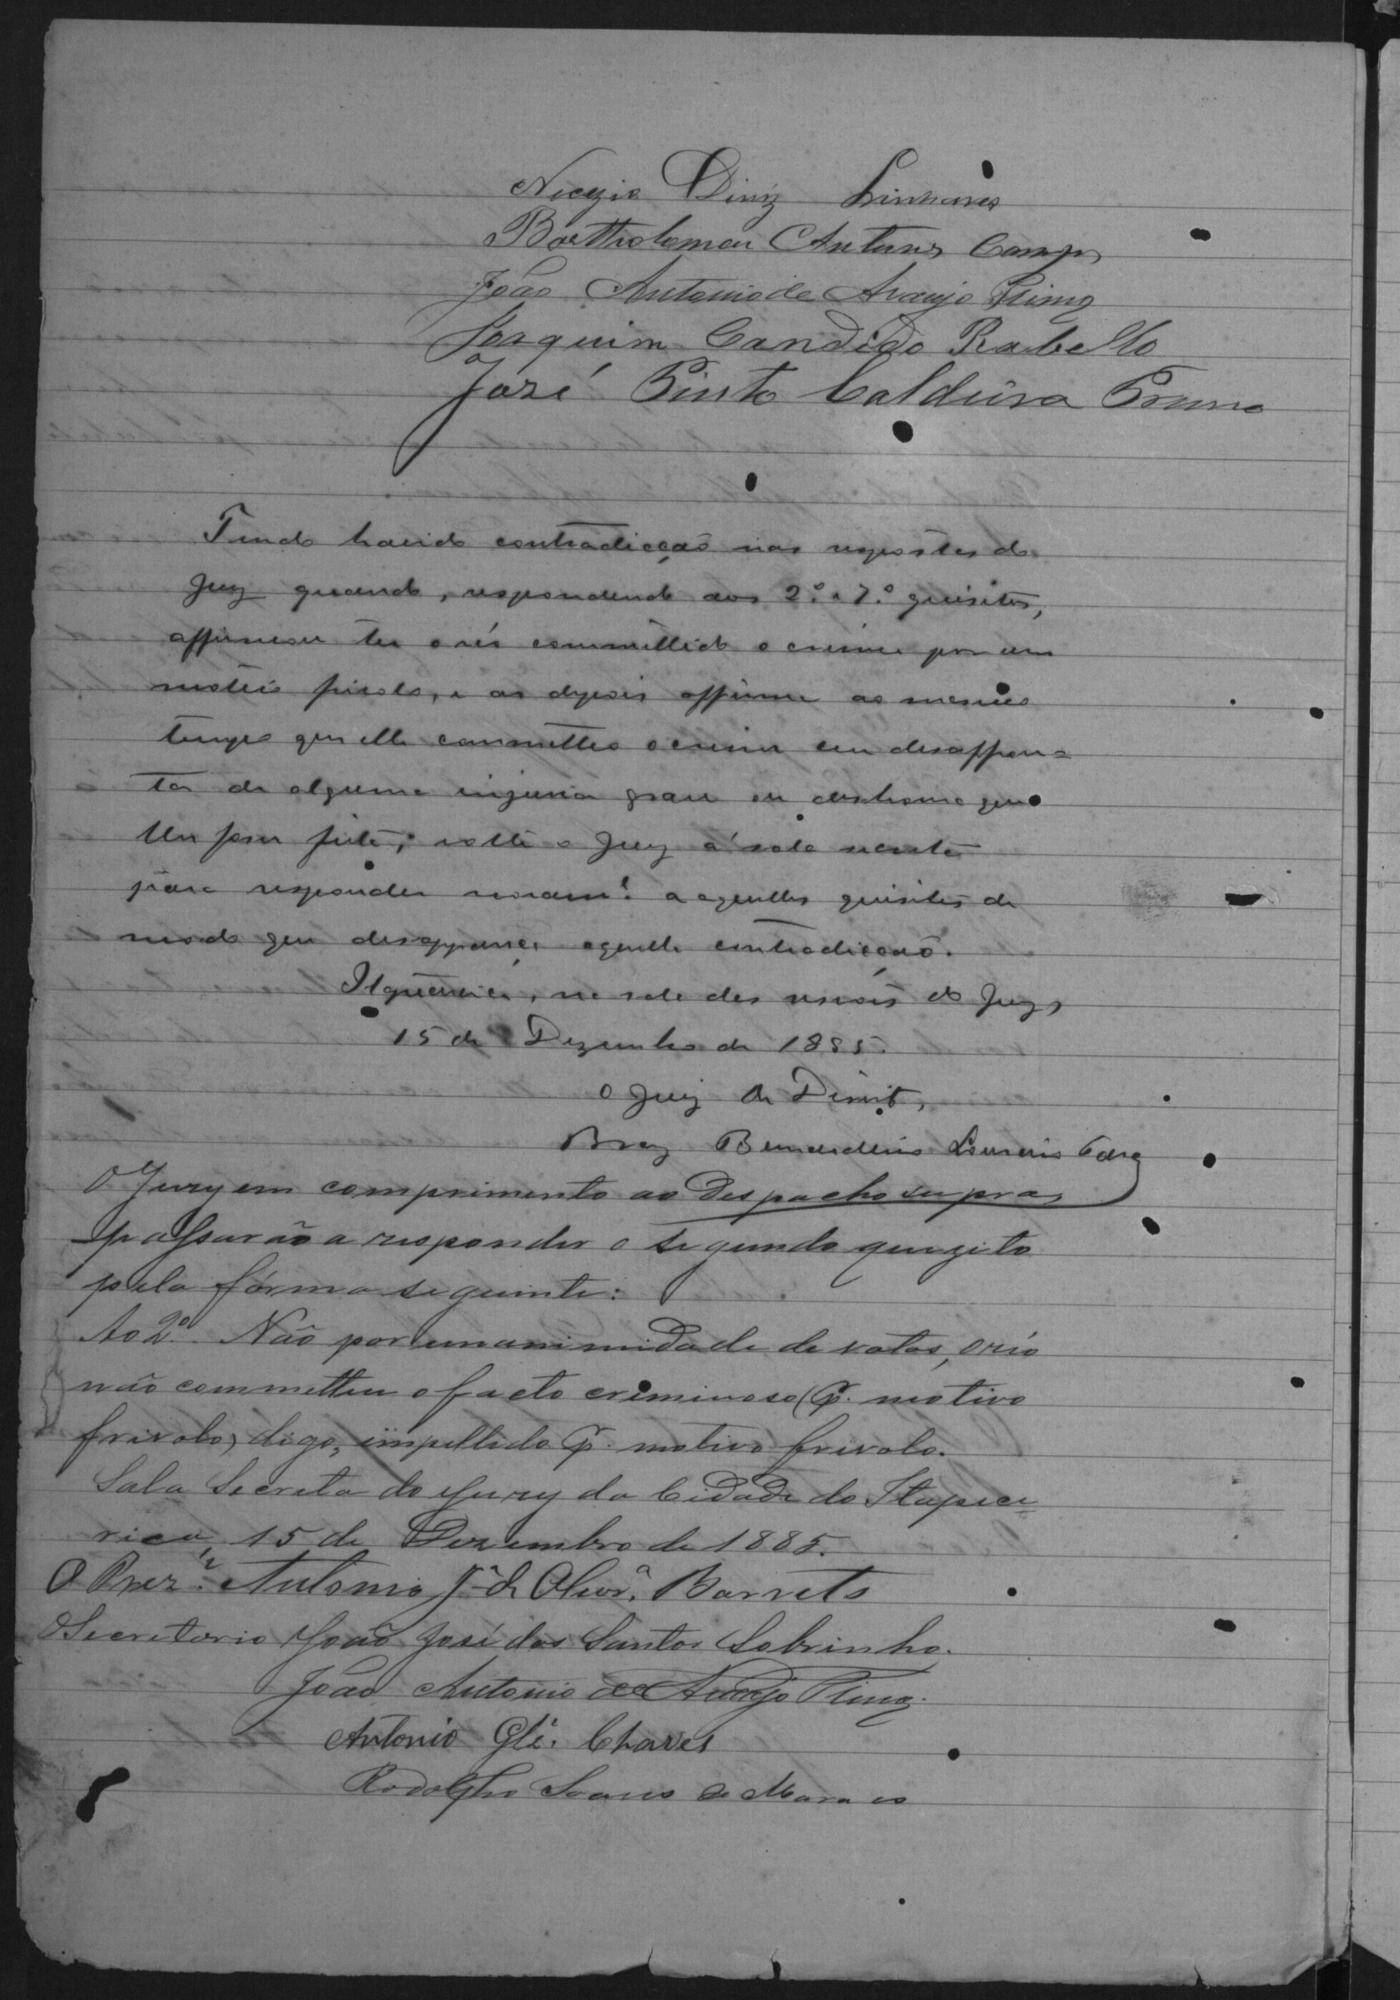 Diniz Linhares
Bartholomeu Antunes Campos
João Antonio de Araujo Primo
Joaquim Candido Rabello
José Pinto Caldeira Primo
Tendo havido contradicção nas respostas do
Jury quando, respondendo aos 2º e 7º quisitos,
affirmou ter o réo commettido o crime por um
motivo frivolo, e ao depois affirma ao mesmo
tempo que elle commetteo o crime em desaffron-
ta de alguma injuria grave ou deshonra que
lhe fora feita; volte o Jury á sala secreta
para responder novamᵉ a aquelles quisitos de
modo que desappareça aquella contradicção.
Itapecerica, na sala das sessões do Jury,
15 de Dezembro de 1885.
O Juiz de Direito,
Braz Bernardino Loureiro
O Jury em comprimento ao Despacho supra,
passarão a responder o segundo quezito
pela fórma seguinte:
Ao 2º Não por unanimidade de votos, o réo
não commetteu o facto criminoso (p. motivo
frivolo) digo, impellido p. motivo frivolo.
Sala Secreta do Jury da Cidade do Itapece
rica, 15 de Dezembro de 1885.
O Prezᵉ. Antonio Jᵉ de Olivrᵃ. Barreto
O Secretario João José dos Santos Sobrinho.
João Antonio de Araujo Primo.
Antonio Glz. Chaves
Rodolpho Soares de Moraes